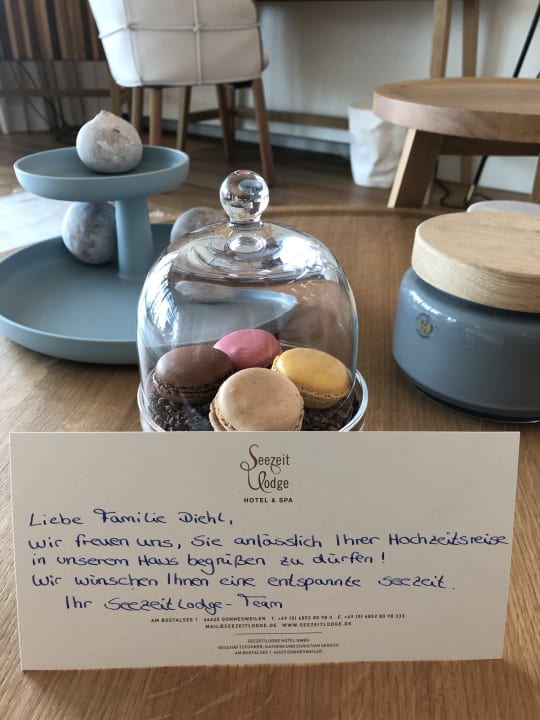 Seezeit
Lodge
HOTEL & SPA
Liebe Familie Diehl,
wir freuen uns, Sie anlässlich Ihrer Hochzeitsreise
in unserem Haus begrüßen zu dürfen!
Wir wünschen Ihnen eine entspannte Seezeit.
Ihr Seezeitlodge-Team
AM BOSTALSEE 1 66625 GONNESWEILER T. +49 (0) 6852 80 98 0 F. +49 (0) 6852 80 98 333
MAIL@SEEZEITLODGE.DE WWW.SEEZEITLODGE.DE
SEEZEITLODGE HOTEL GMBH
GESCHÄFTSFÜHRER: KATHRIN UND CHRISTIAN SERSCH
AM BOSTALSEE 1 66625 GONNESWEILER